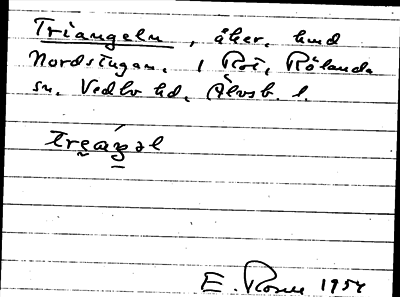 Triangeln, åker, hmd
Nordstugan, 1 Röi, Rölanda
sn, Vedbo hd, Älvsb. l.
treáŋəl
E. 1954